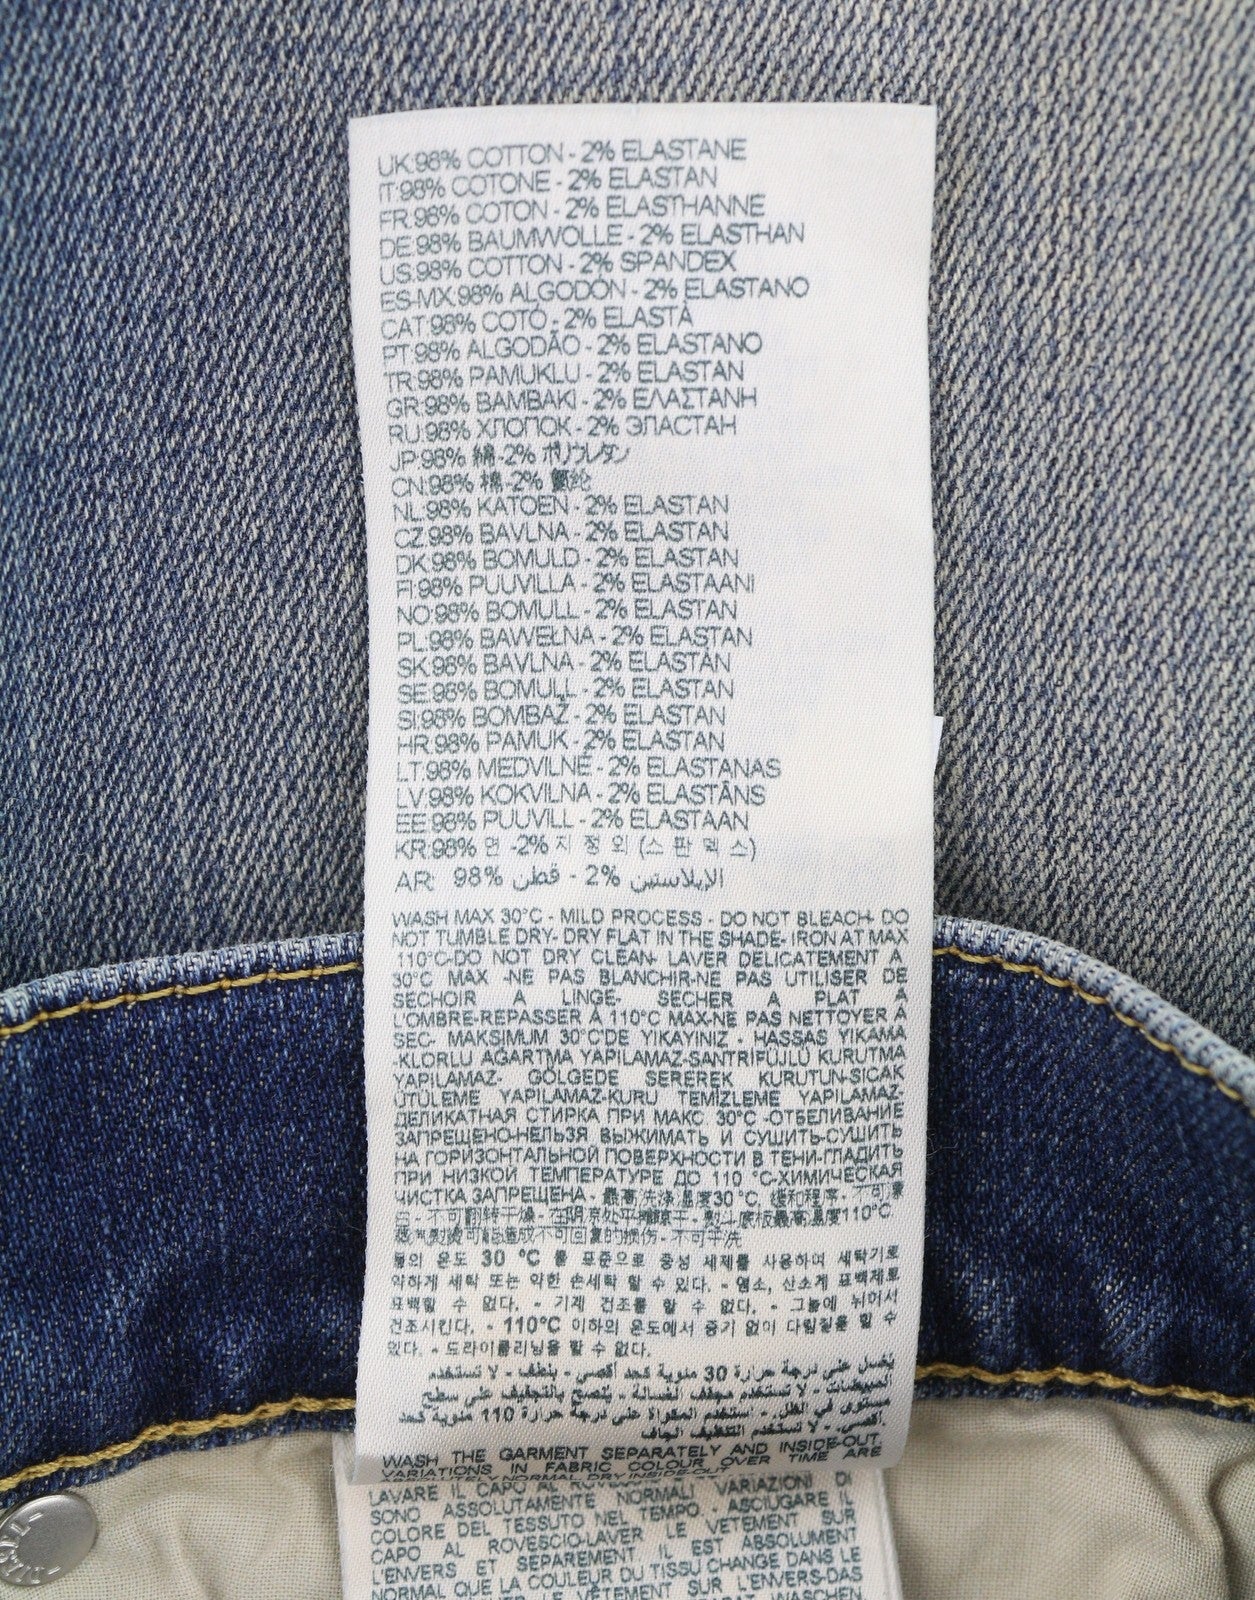 UK:98% COTTON - 2% ELASTANE
IT:98% COTONE - 2% ELASTAN
FR:98% COTON - 2% ELASTHANNE
DE:98% BAUMWOLLE - 2% ELASTHAN
US:98% COTTON - 2% SPANDEX
ES-MX:98% ALGODÓN - 2% ELASTANO
CAT:98% COTÓ - 2% ELASTÀ
PT:98% ALGODÃO - 2% ELASTANO
TR:98% PAMUKLU - 2% ELASTAN
GR:98% BAMBAKI - 2% ΕΛΑΣΤΑΝΗ
RU:98% ХЛОПОК - 2% ЭЛАСТАН
JP:98% 綿 -2% ポリウレタン
CN:98% 棉 -2%
NL:98% KATOEN - 2% ELASTAN
CZ:98% BAVLNA - 2% ELASTAN
DK:98% BOMULD - 2% ELASTAN
FI:98% PUUVILLA - 2% ELASTAANI
NO:98% BOMULL - 2% ELASTAN
PL:98% BAWEŁNA - 2% ELASTAN
SK:98% BAVLNA - 2% ELASTAN
SE:98% BOMULL - 2% ELASTAN
SI:98% BOMBAŽ - 2% ELASTAN
HR:98% PAMUK - 2% ELASTAN
LT:98% MEDVILNĖ - 2% ELASTANAS
LV:98% KOKVILNA - 2% ELASTĀNS
EE:98% PUUVILL - 2% ELASTAAN
KR:98% 면 -2% 지 정 외 (스 판 덱 스)
AR: 98% قطن - 2% الإيلاستين
WASH MAX 30°C - MILD PROCESS - DO NOT BLEACH- DO
NOT TUMBLE DRY- DRY FLAT IN THE SHADE- IRON AT MAX
110°C-DO NOT DRY CLEAN- LAVER DELICATEMENT A
30°C MAX -NE PAS BLANCHIR-NE PAS UTILISER DE
SECHOIR A LINGE- SECHER A PLAT A
L'OMBRE-REPASSER À 110°C MAX-NE PAS NETTOYER A
SEC- MAKSIMUM 30°C'DE YIKAYINIZ - HASSAS YIKAMA
-KLORLU AĞARTMA YAPILAMAZ-SANTRİFÜJLÜ KURUTMA
YAPILAMAZ- GÖLGEDE SEREREK KURUTUN-SICAK
ÜTÜLEME YAPILAMAZ-KURU TEMİZLEME YAPILAMAZ-
ДЕЛИКАТНАЯ СТИРКА ПРИ МАКС 30°C -ОТБЕЛИВАНИЕ
ЗАПРЕЩЕНО-НЕЛЬЗЯ ВЫЖИМАТЬ И СУШИТЬ-СУШИТЬ
НА ГОРИЗОНТАЛЬНОЙ ПОВЕРХНОСТИ В ТЕНИ-ГЛАДИТЬ
ПРИ НИЗКОЙ ТЕМПЕРАТУРЕ ДО 110 °C-ХИМИЧЕСКАЯ
ЧИСТКА ЗАПРЕЩЕНА - 最高洗涤温度30°C, 缓和程序 - 不可漂
白 - 不可翻转干燥 - 在阴凉处平摊晾干 - 熨斗底板最高温度110°C
可能造成不可回复的损伤 - 不可干洗
물의 온도 30 °C 를 표준으로 중성 세제를 사용하여 세탁기로
약하게 세탁 또는 약한 손세탁 할 수 있다. - 염소, 산소계 표백제로
표백할 수 없다. - 기계 건조를 할 수 없다. - 그늘에 뉘어서
건조시킨다. - 110°C 이하의 온도에서 증기 없이 다림질을 할 수
있다. - 드라이클리닝을 할 수 없다.
يغسل على درجة حرارة 30 مئوية كحد أقصى - بلطف - لا تستخدم
المبيضات - لا تستخدم مجفف الغسالة - ينصح بالتجفيف على سطح
مستوى في الظل - تستخدم المكواة على درجة حرارة 110 مئوية كحد
أقصى - لا تستخدم التنظيف الجاف.
WASH THE GARMENT SEPARATELY AND INSIDE-OUT.
VARIATIONS IN FABRIC COLOUR OVER TIME ARE
ABSOLUTELY NORMAL. DRY INSIDE-OUT
LAVARE IL CAPO AL ROVESCIO
SONO ASSOLUTAMENTE NORMALI VARIAZIONI DI
COLORE DEL TESSUTO NEL TEMPO - ASCIUGARE IL
CAPO AL ROVESCIO-LAVER LE VETEMENT SUR
L'ENVERS ET SEPAREMENT. IL EST ABSOLUMENT
NORMAL QUE LA COULEUR DU TISSU CHANGE DANS LE
LE VÊTEMENT SUR L'ENVERS-DAS
SEPARAT WASCHEN.